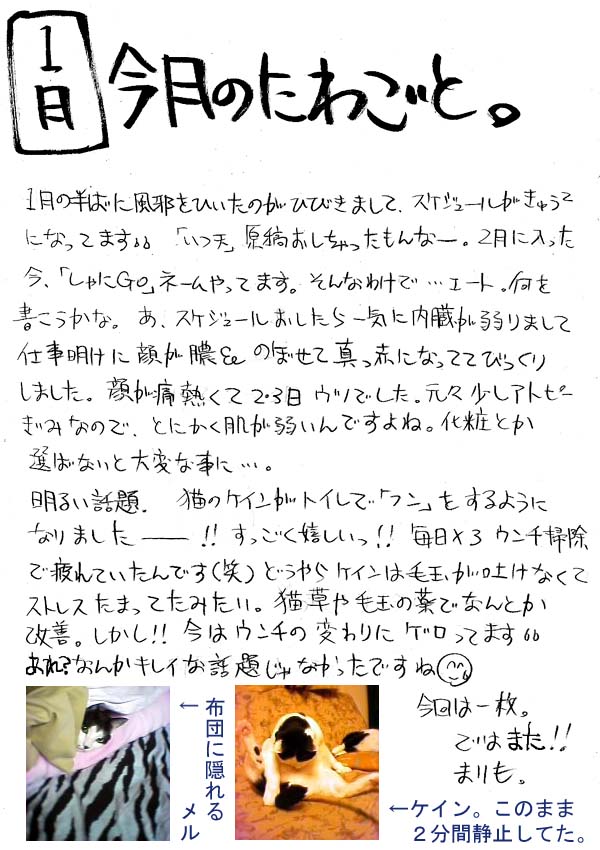 1月
今月のたわごと。
1月の半ばに風邪をひいたのがひびきまして、スケジュールがきゅうこ
になってます。。「いつ天」原稿おしちゃったもんなー。2月に入った
今、「しゃにGo」ネームやってます。そんなわけで…エート。何を
書こうかな。あ、スケジュールおしたら一気に内臓が弱りまして
仕事明けに顔が膿& のぼせて真っ赤になっててびっくり
しました。顔が痛熱くて2・3日 ウツでした。元々少しアトピー
ぎみなので、とにかく肌が弱いんですよね。化粧とか
選ばないと大変な事に…。
明るい話題. 猫のケインがトイレで「フン」をするように
なりました——!! すっごく嬉しいっ!! 毎日×3 ウンチ掃除
で疲れていたんです(笑)どうやらケインは毛玉が吐けなくて
ストレスたまってたみたい。猫草や毛玉の薬でなんとか
改善。しかし!! 今はウンチの変わりに ゲロってます。。
あれ?なんかキレイな話題じゃなかったですね
今回は一枚。
ではまた!!
まりも。
←布団に隠れる
メル
←ケイン。このまま
2分間静止してた。